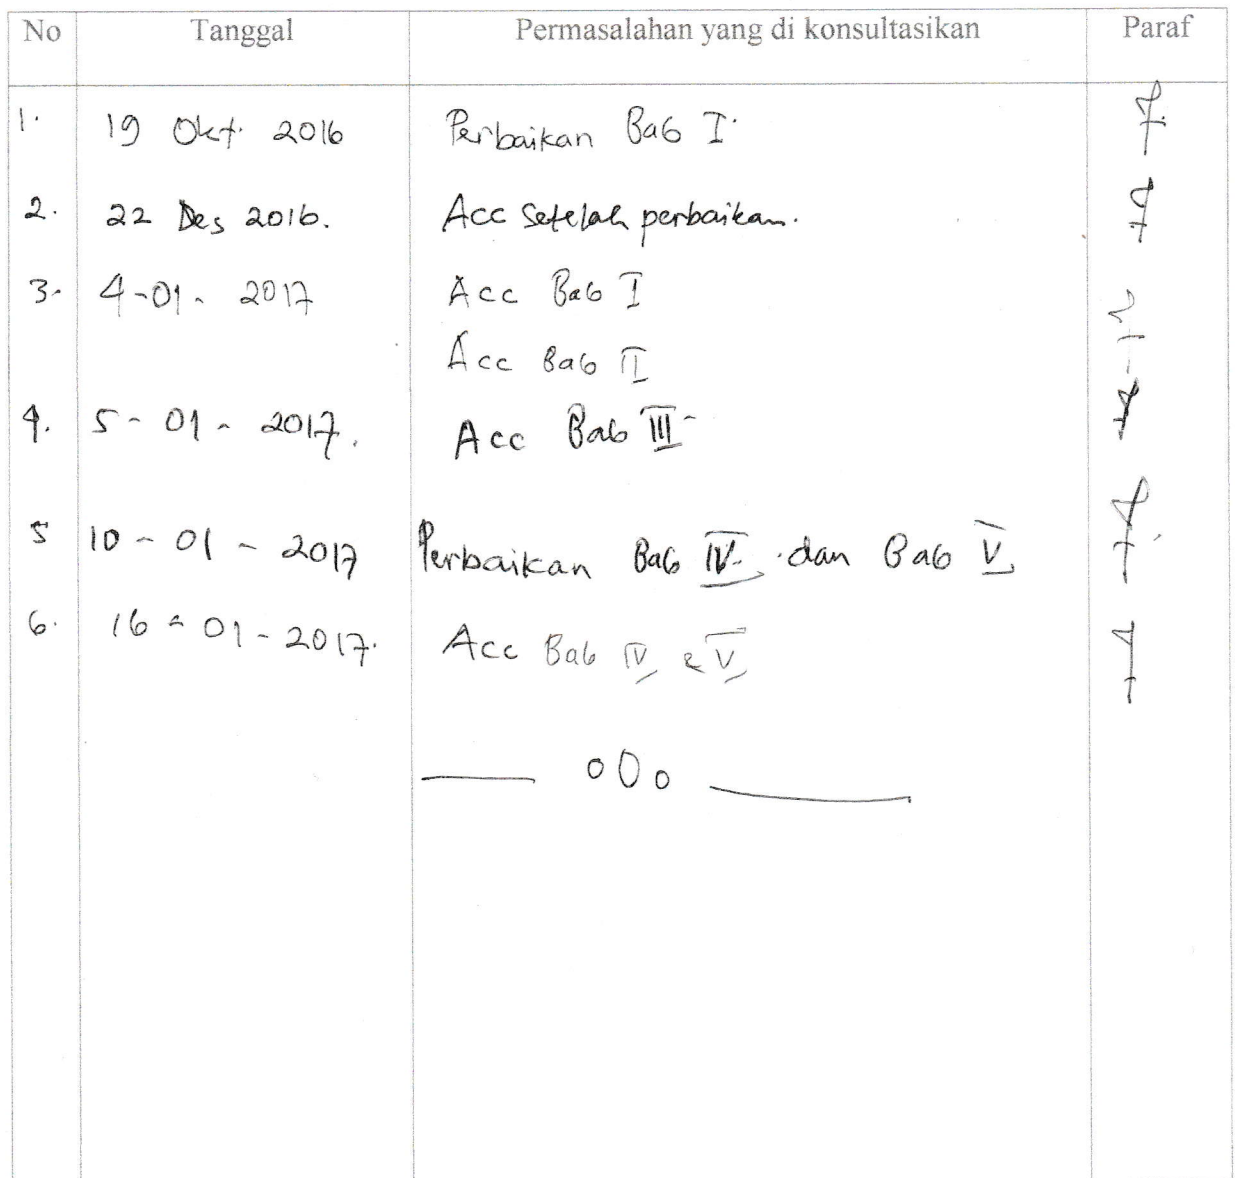 No Tanggal Permasalahan yang di konsultasikan Paraf
1. 19 Okt. 2016 Perbaikan Bab I.
2. 22 Des 2016. Acc setelah perbaikan.
3. 4-01-2017 Acc Bab I
Acc Bab II
4. 5-01-2017. Acc Bab III
5 10-01-2017 Perbaikan Bab IV. dan Bab V
6. 16-01-2017. Acc Bab IV & V
oOo